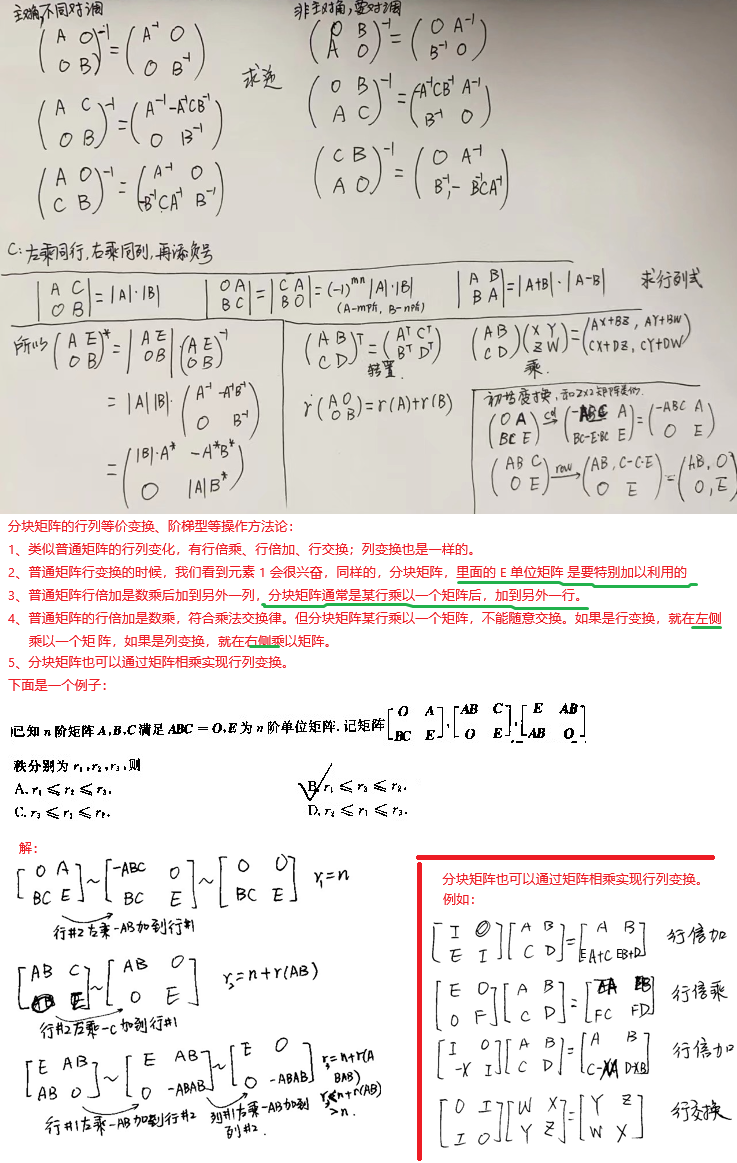 主对角,不同对调
非主对角,要对调
(A O; O B)⁻¹ = (A⁻¹ O; O B⁻¹)
求逆
(O B; A O)⁻¹ = (O A⁻¹; B⁻¹ O)
(A C; O B)⁻¹ = (A⁻¹ -A⁻¹CB⁻¹; O B⁻¹)
(O B; A C)⁻¹ = (-A⁻¹CB⁻¹ A⁻¹; B⁻¹ O)
(A O; C B)⁻¹ = (A⁻¹ O; -B⁻¹CA⁻¹ B⁻¹)
(C B; A O)⁻¹ = (O A⁻¹; B⁻¹, -B⁻¹CA⁻¹)
C:左乘同行,右乘同列,再添负号
|A C; O B| = |A|·|B|
|O A; B C| = |C A; B O| = (-1)^mn |A|·|B|
(A-m阶, B-n阶)
|A B; B A| = |A+B|·|A-B|
求行列式
所以 (A E; O B)* = |A E; O B| (A E; O B)⁻¹
= |A||B|·(A⁻¹ -A⁻¹B⁻¹; O B⁻¹)
= (|B|·A* -A*B*; O |A|B*)
(A B; C D)ᵀ = (Aᵀ Cᵀ; Bᵀ Dᵀ)
转置.
(A B; C D)(X Y; Z W) = (AX+BZ, AY+BW; CX+DZ, CY+DW)
乘.
r(A O; O B) = r(A)+r(B)
初等变换,和2X2矩阵类似.
(O A; BC E) →col (-ABC A; BC-E·BC E) = (-ABC A; O E)
(AB C; O E) →row (AB, C-C·E; O E) = (AB, O; O, E)
分块矩阵的行列等价变换、阶梯型等操作方法论:
1、类似普通矩阵的行列变化,有行倍乘、行倍加、行交换;列变换也是一样的。
2、普通矩阵行变换的时候,我们看到元素 1 会很兴奋,同样的,分块矩阵,里面的 E 单位矩阵 是要特别加以利用的
3、普通矩阵行倍加是数乘后加到另外一列,分块矩阵通常是某行乘以一个矩阵后,加到另外一行。
4、普通矩阵的行倍加是数乘,符合乘法交换律。但分块矩阵某行乘以一个矩阵,不能随意交换。如果是行变换,就在左侧
乘以一个矩阵,如果是列变换,就在右侧乘以矩阵。
5、分块矩阵也可以通过矩阵相乘实现行列变换。
下面是一个例子:
已知 n 阶矩阵 A,B,C 满足 ABC = O,E 为 n 阶单位矩阵. 记矩阵 [O A; BC E], [AB C; O E], [E AB; AB O]
秩分别为 r₁,r₂,r₃,则
A. r₁ ≤ r₂ ≤ r₃.
B. r₁ ≤ r₃ ≤ r₂.
C. r₃ ≤ r₁ ≤ r₂.
D. r₂ ≤ r₁ ≤ r₃.
解:
[O A; BC E] ~ [-ABC O; BC E] ~ [O O; BC E] r₁=n
行#2左乘-AB加到行#1
[AB C; O E] ~ [AB O; O E] r₂=n+r(AB)
行#2左乘-C加到行#1
[E AB; AB O] ~ [E AB; O -ABAB] ~ [E O; O -ABAB] r₃=n+r(A
BAB)
r₃≤n+r(AB)
>n.
行#1左乘-AB加到行#2
列#1右乘-AB加到
列#2.
分块矩阵也可以通过矩阵相乘实现行列变换。
例如:
[I O; E I][A B; C D] = [A B; EA+C EB+D] 行倍加
[E O; O F][A B; C D] = [EA EB; FC FD] 行倍乘
[I O; -X I][A B; C D] = [A B; C-XA D-XB] 行倍加
[O I; I O][W X; Y Z] = [Y Z; W X] 行交换